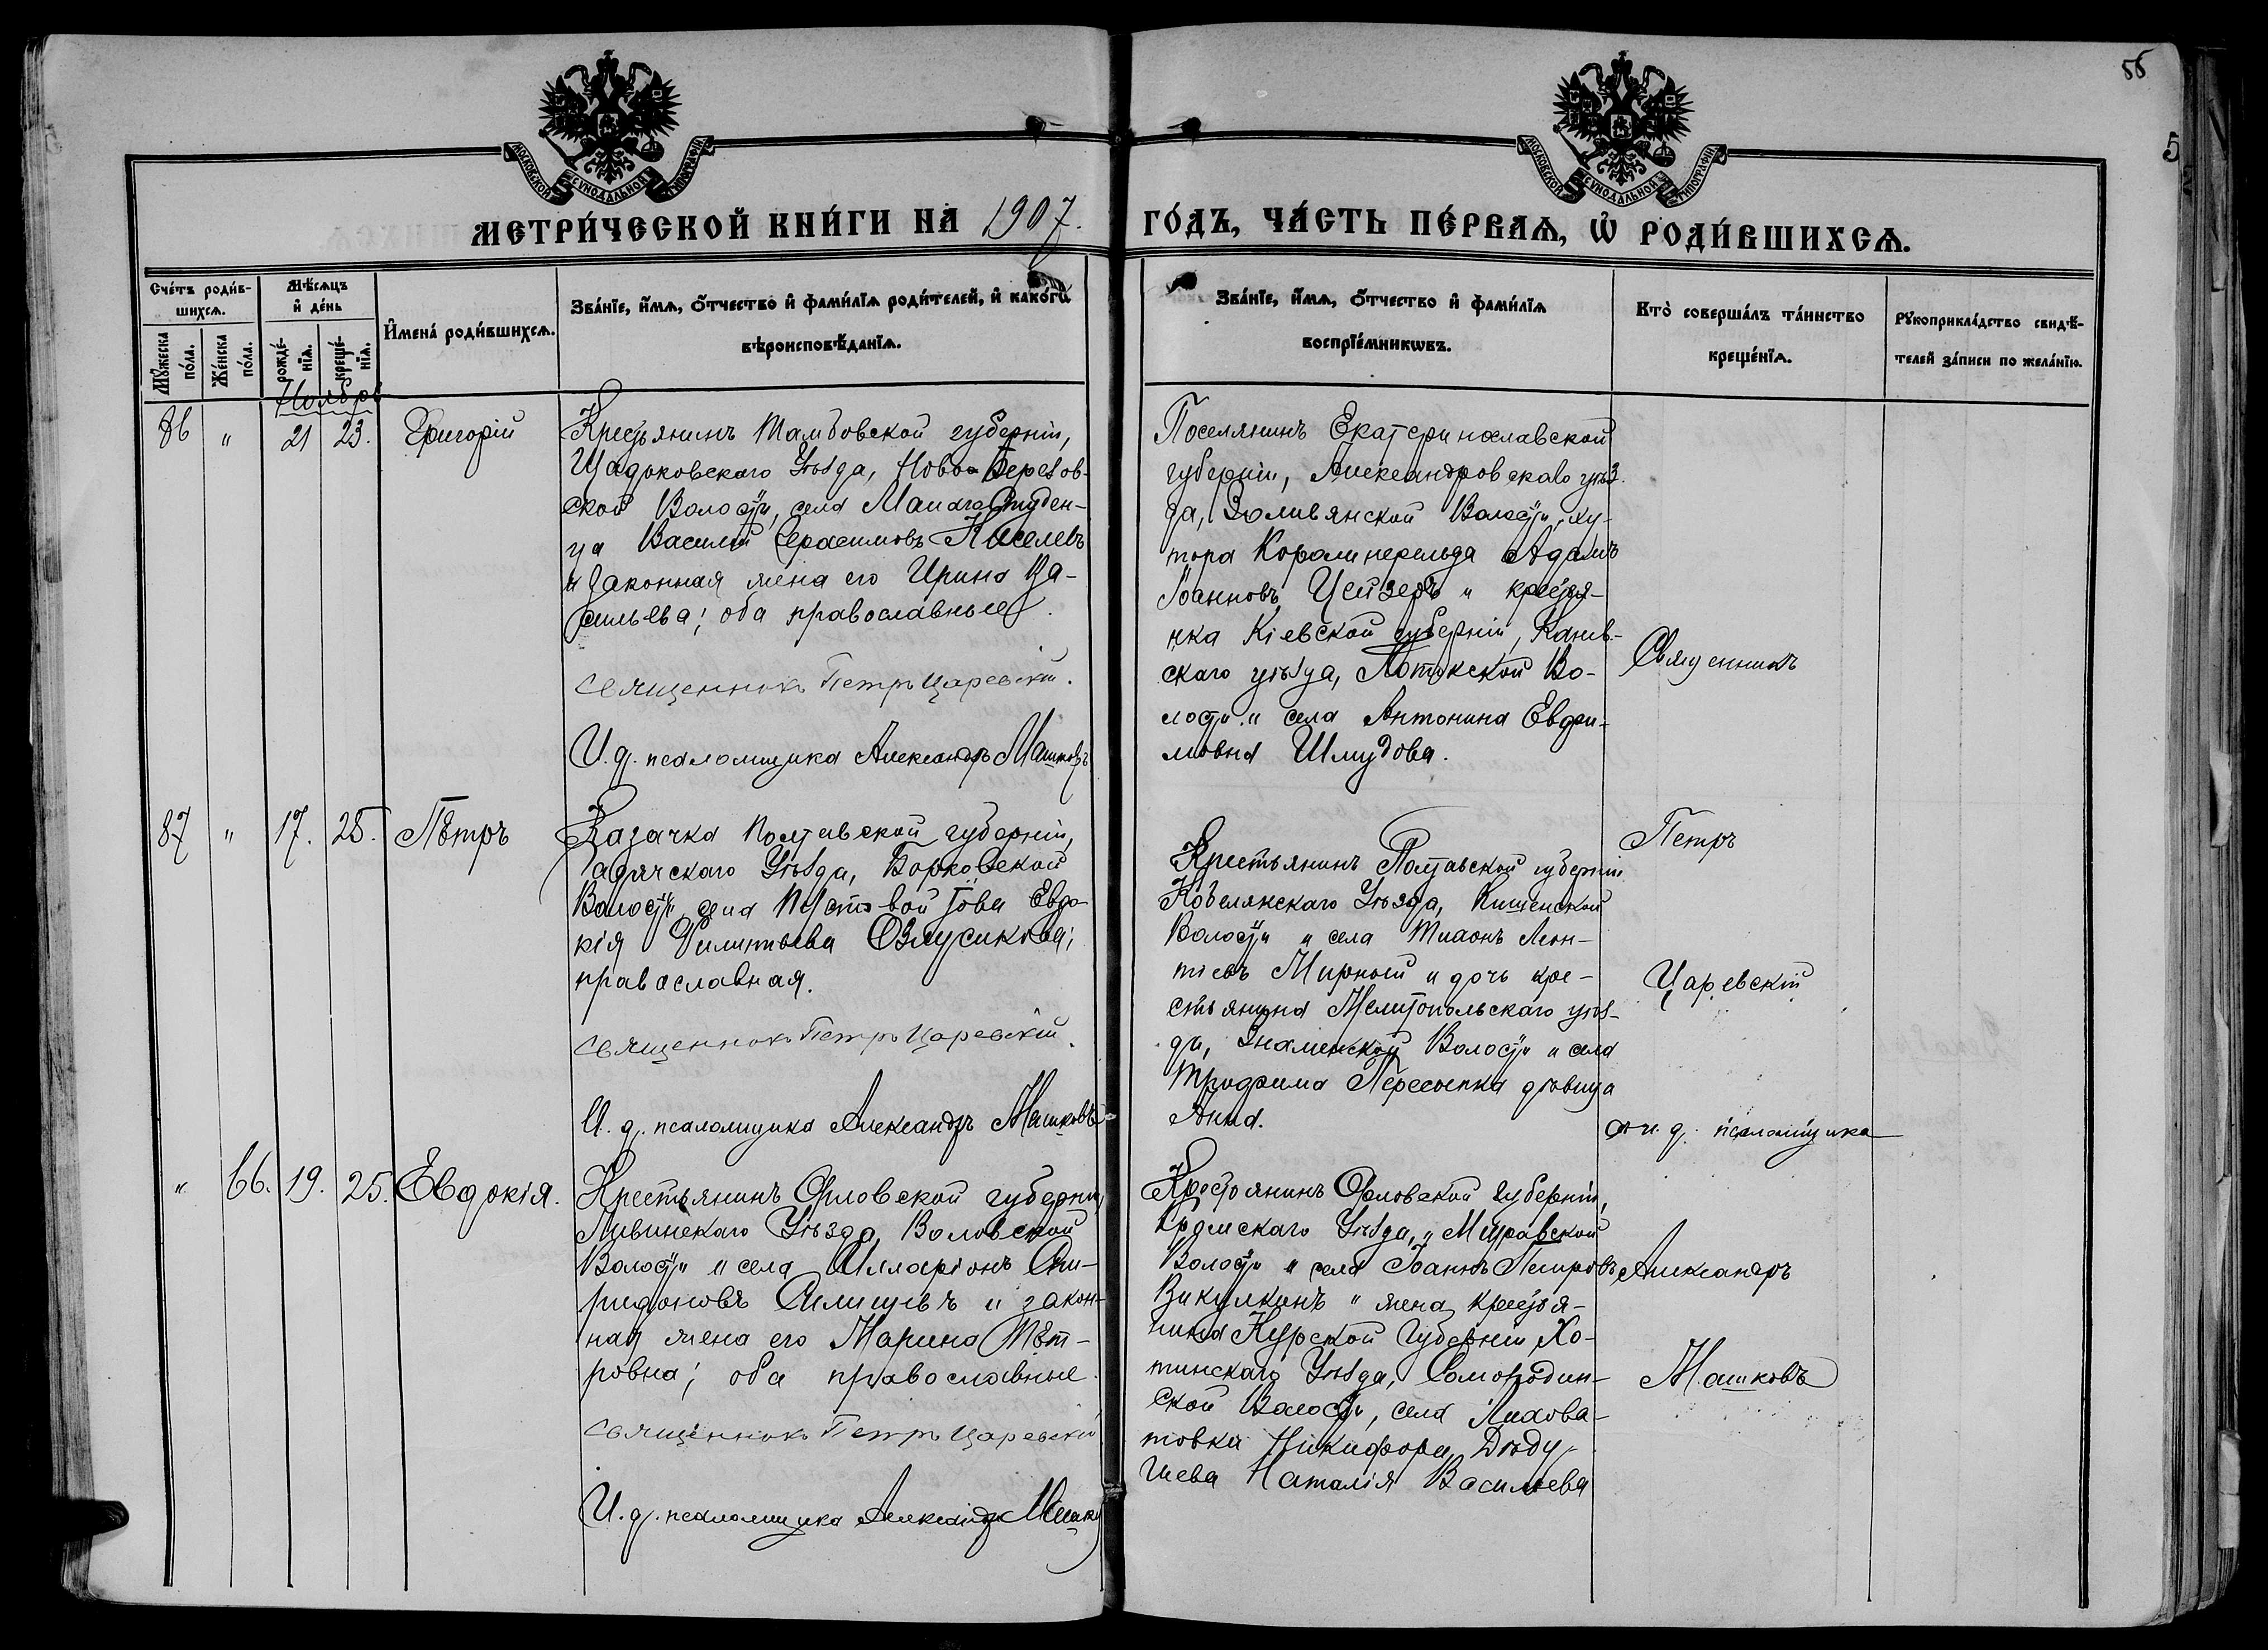 55
5
МОСКОВСКОЙ СѴНОДАЛЬНОЙ ТИПОГРАФІИ
МОСКОВСКОЙ СѴНОДАЛЬНОЙ ТИПОГРАФІИ
МЕТРИ́ЧЕСКОЙ КНИ́ГИ НА 1907.
ГО́ДЪ, ЧА́СТЬ ПЕ́РВАѦ, Ѡ҆ РОДИ́ВШИХСѦ.
Сче́тъ роди́в-
шихсѧ.
Мꙋ́жеска по́ла.
Же́нска по́ла.
Мѣ́сѧцъ
и҆ де́нь
рожде́-
нїѧ.
креще́-
нїѧ.
И҆мена̀ роди́вшихсѧ.
Зва́нїе, и҆́мѧ, ѻ҆́тчество и҆ фами́лїѧ роди́телей, и҆ како́гѡ
вѣроисповѣ́данїѧ.
Зва́нїе, и҆́мѧ, ѻ҆́тчество и҆ фами́лїѧ
воспрїе́мникѡвъ.
Кто̀ соверша́лъ та́инство
креще́нїѧ.
Рꙋкоприкла́дство свидѣ́-
телей за́писи по жела́нїю.
Ноябрь
86 " 21 23. Григорій
Крестьянинъ Тамбовской губерніи,
Шадьковского Уѣзда, Ново-Березов-
ской Волости, села Малаго Студен-
ца Василій Герасимовъ Киселевъ
и законная жена его Ирина Ва-
сильева; оба православные.
Священникъ Петръ Царевскій.
И. д. псаломщика Александръ Машковъ
Поселянинъ Екатеринославской
губерніи, Александровскаго уѣз-
да, Волости, ху-
тора Адамъ
Іоанновъ и крестья-
нка Кіевской губерніи, Канев-
скаго уѣзда, Потокской Во-
лости и села Антонина Евфи-
мовна Шмудова.
Священникъ
87 " 17. 25. Пѣтръ
Казачка Полтавской губерніи,
Гадячскаго Уѣзда, Борковской
Волости, села Евдо-
кія Филиппова
православная.
Священникъ Петръ Царевскій.
И. д. псаломщика Александръ Машковъ
Крестьянинъ Полтавской губерніи
Кобелякскаго Уѣзда, Кишенской
Волости и села Тихонъ Леон-
тіевъ Мирный и дочь кре-
стьянина Мелитопольскаго уѣз-
да, Знаменской Волости и села
Трофима Пересыпка дѣвица
Анна.
Петръ
Царевскій
и. д. псаломщика
" 66. 19. 25. Евдокія.
Крестьянинъ Орловской губерніи,
Ливинскаго Уѣзда, Воловской
Волости и села Илларіонъ Спи-
ридоновъ и закон-
ная жена его Марина Пѣт-
ровна; оба православные.
Священникъ Петръ Царевскій
И. д. псаломщика Александръ Машковъ
Крестьянинъ Орловской губерніи,
Кромскаго Уѣзда, и Муравской
Волости и села Іоаннъ Петровъ
Викулкинъ и жена крестья-
нина Курской Губерніи Хо-
тинскаго Уѣзда, Самородин-
ской Волости, села Лихова-
товки Никифора
Наталія Васильева
Александръ
Машковъ